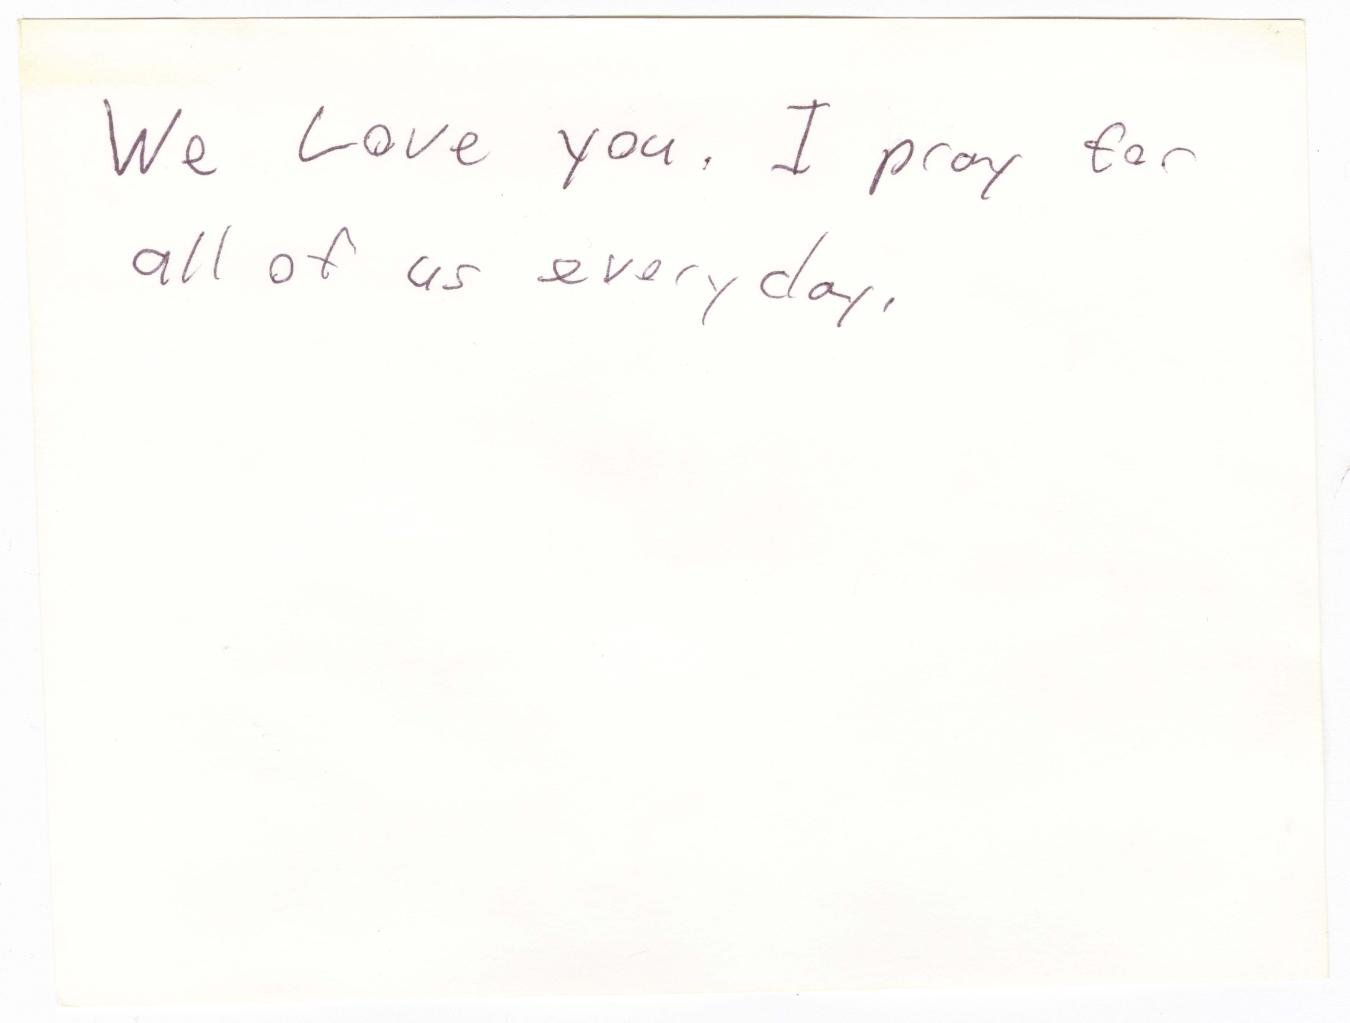 We Love you. I pray for
all of us everyday.